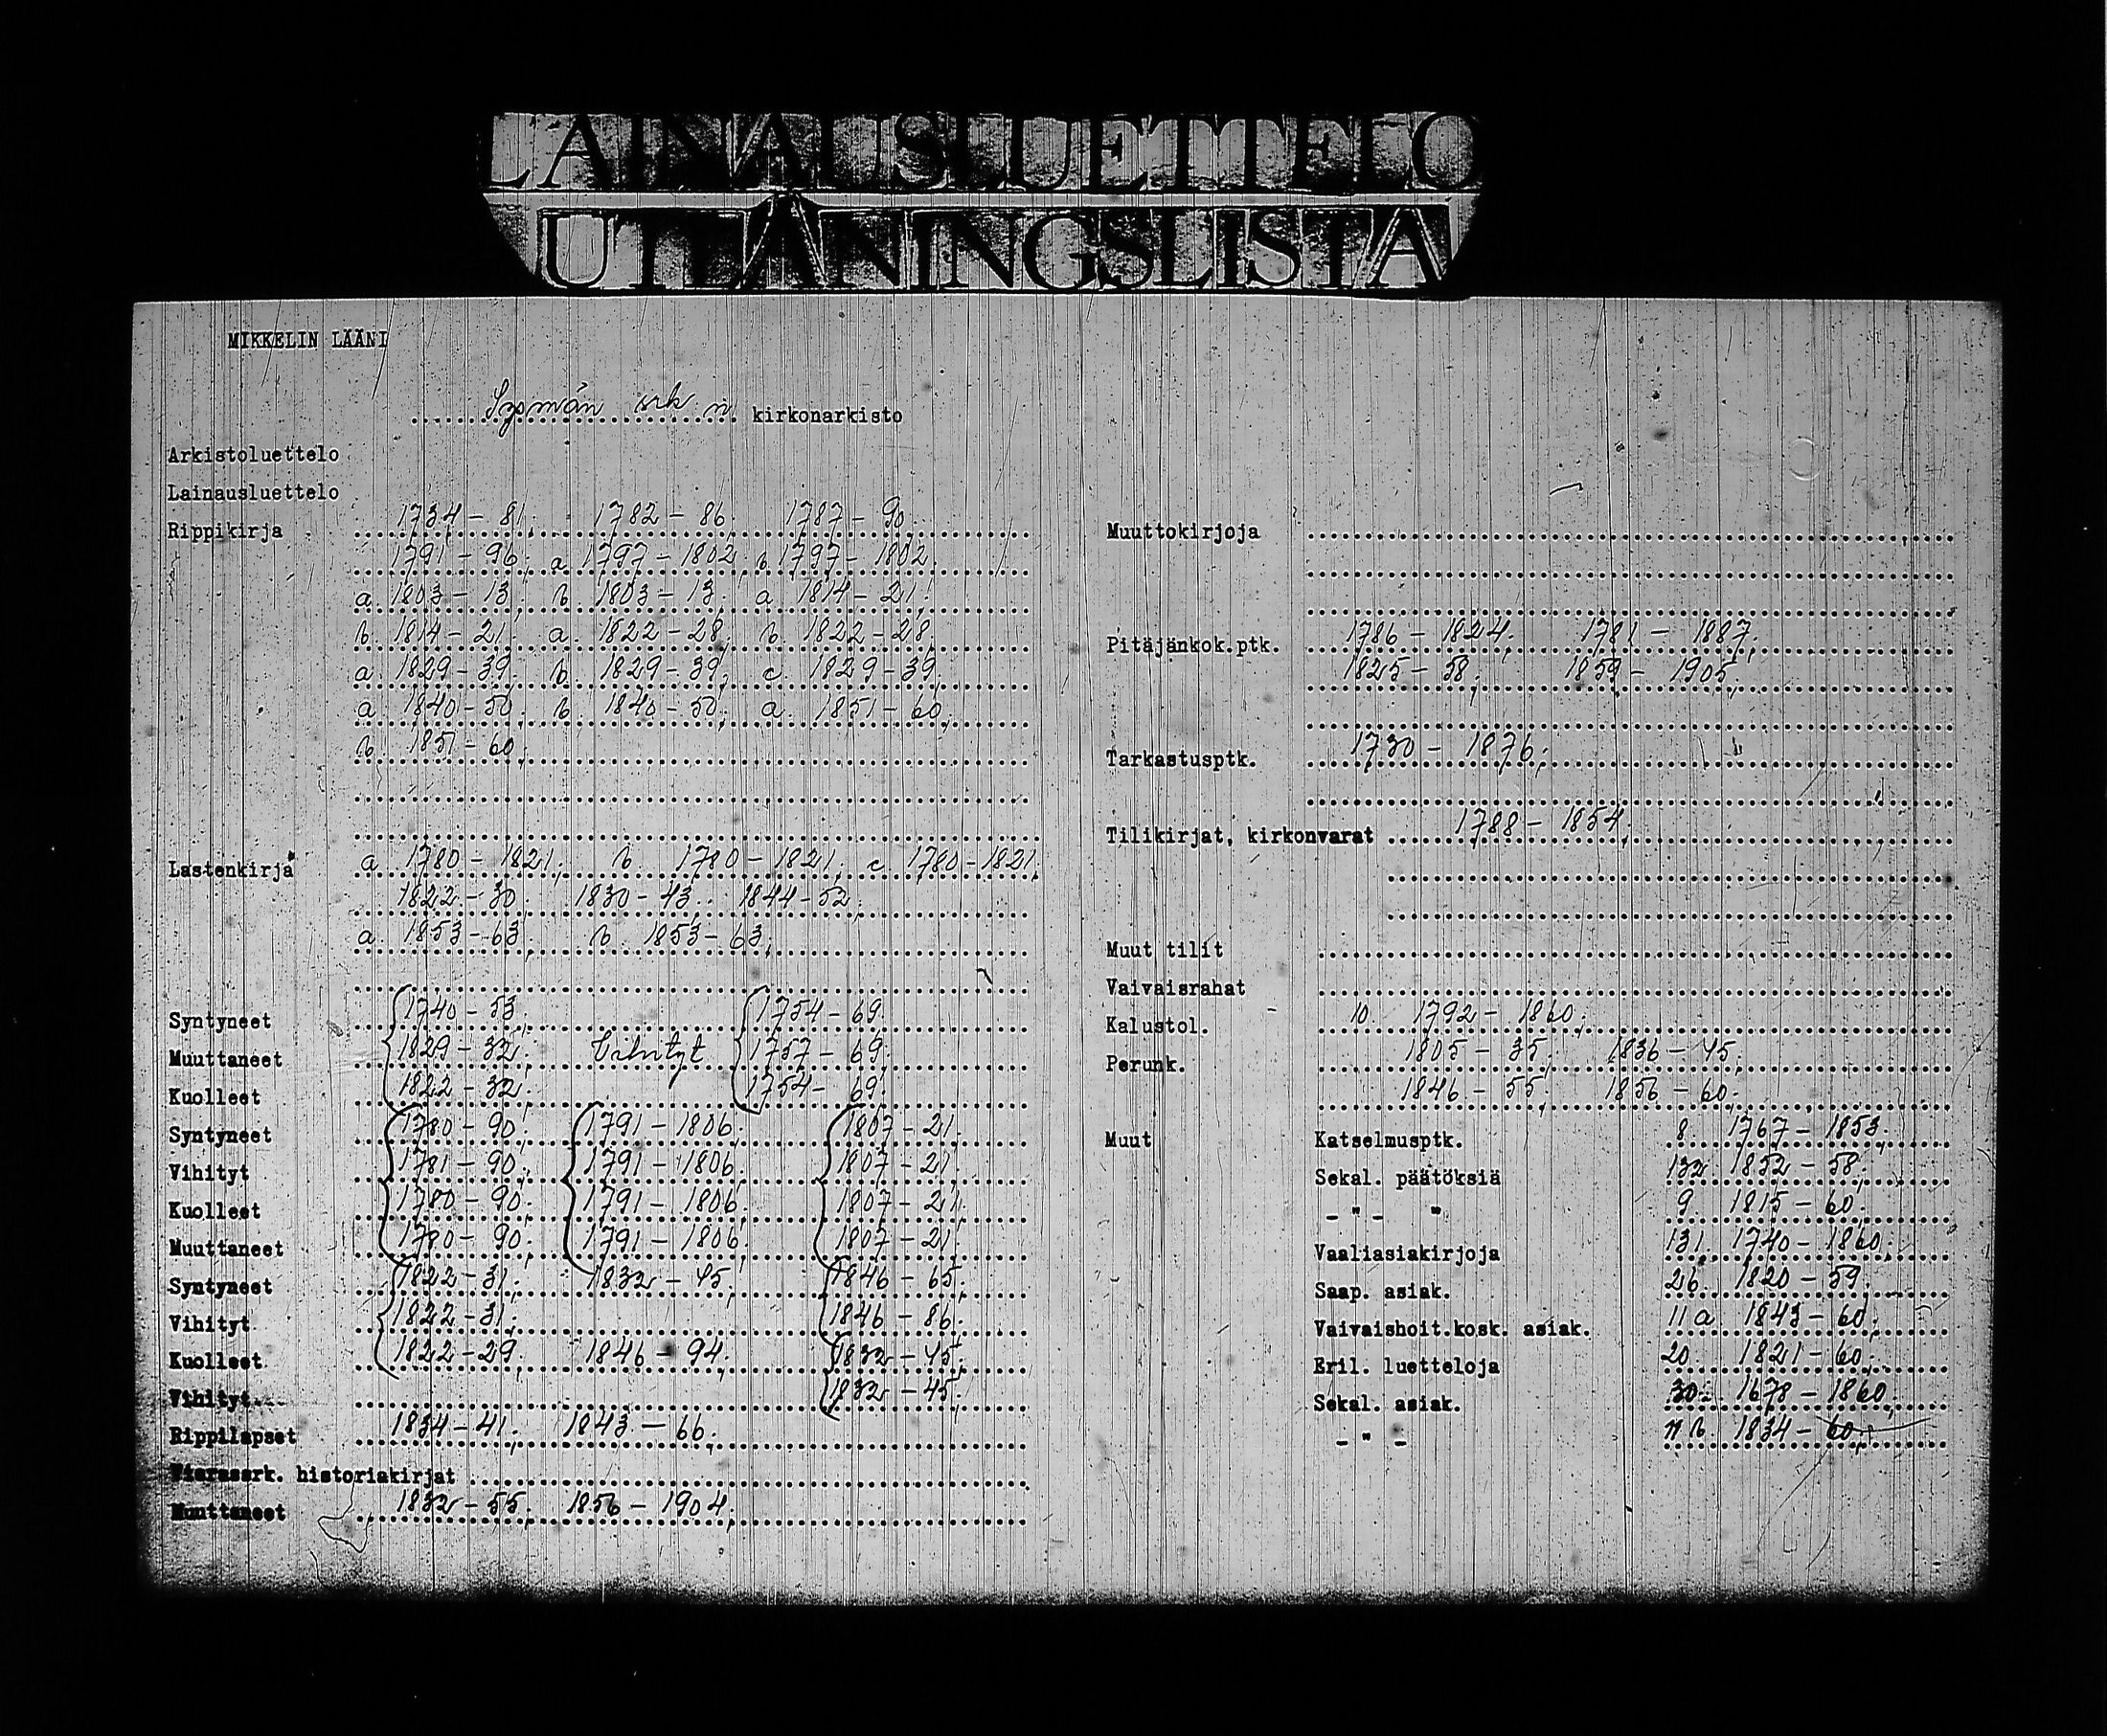 LAINAUSLUETTELO
UTLÅNINGSLISTA
MIKKELIN LÄÄNI
Sysmän srk n kirkonarkisto
Arkistoluettelo
Lainausluettelo
Rippikirja 1734-81; 1782-86; 1787-90;
1791-96; a 1797-1802; b 1797-1802;
a 1803-13; b 1803-13; a 1814-21;
b 1814-21; a 1822-28; b 1822-28;
a 1829-39; b 1829-39; c 1829-39;
a 1840-50; b 1840-50; a 1851-60;
b 1851-60;
Lastenkirja a 1780-1821; b 1780-1821; c 1780-1821;
1822-30; 1830-43; 1844-52;
a 1853-63; b 1853-63;
Syntyneet 1740-53 1754-69;
Muuttaneet 1829-32; Vihityt 1757-69;
Kuolleet 1822-32; 1754-69;
Syntyneet 1780-90; 1791-1806; 1807-21;
Vihityt 1781-90; 1791-1806; 1807-21;
Kuolleet 1780-90; 1791-1806; 1807-21;
Muuttaneet 1780-90; 1791-1806; 1807-21;
Syntyneet 1822-31; 1832-45; 1846-65;
Vihityt 1822-31; 1846-86;
Kuolleet 1822-29; 1846-94; 1832-45;
Vihityt 1832-45;
Rippilapset 1834-41; 1843-66;
Vierassrk. historiakirjat
Muuttaneet 1832-55; 1856-1904;
Muuttokirjoja
Pitäjänkok.ptk. 1786-1824; 1781-1887;
1825-58; 1859-1905;
Tarkastusptk. 1730-1876;
Tilikirjat, kirkonvarat 1788-1854;
Muut tilit
Vaivaisrahat
Kalustol. 10. 1792-1860;
Perunk. 1805-35; 1836-45;
1846-55; 1856-60;
Muut Katselmusptk. 8 1767-1853;
Sekal. päätöksiä 132 1852-58;
- " - " 9 1815-60;
Vaaliasiakirjoja 131 1740-1860;
Saap. asiak. 26 1820-59;
Vaivaishoit.kosk. asiak. 11 a 1843-60;
Eril. luetteloja 20 1821-60;
Sekal. asiak. 30 1678-1860;
- " - 11 b 1834-60;